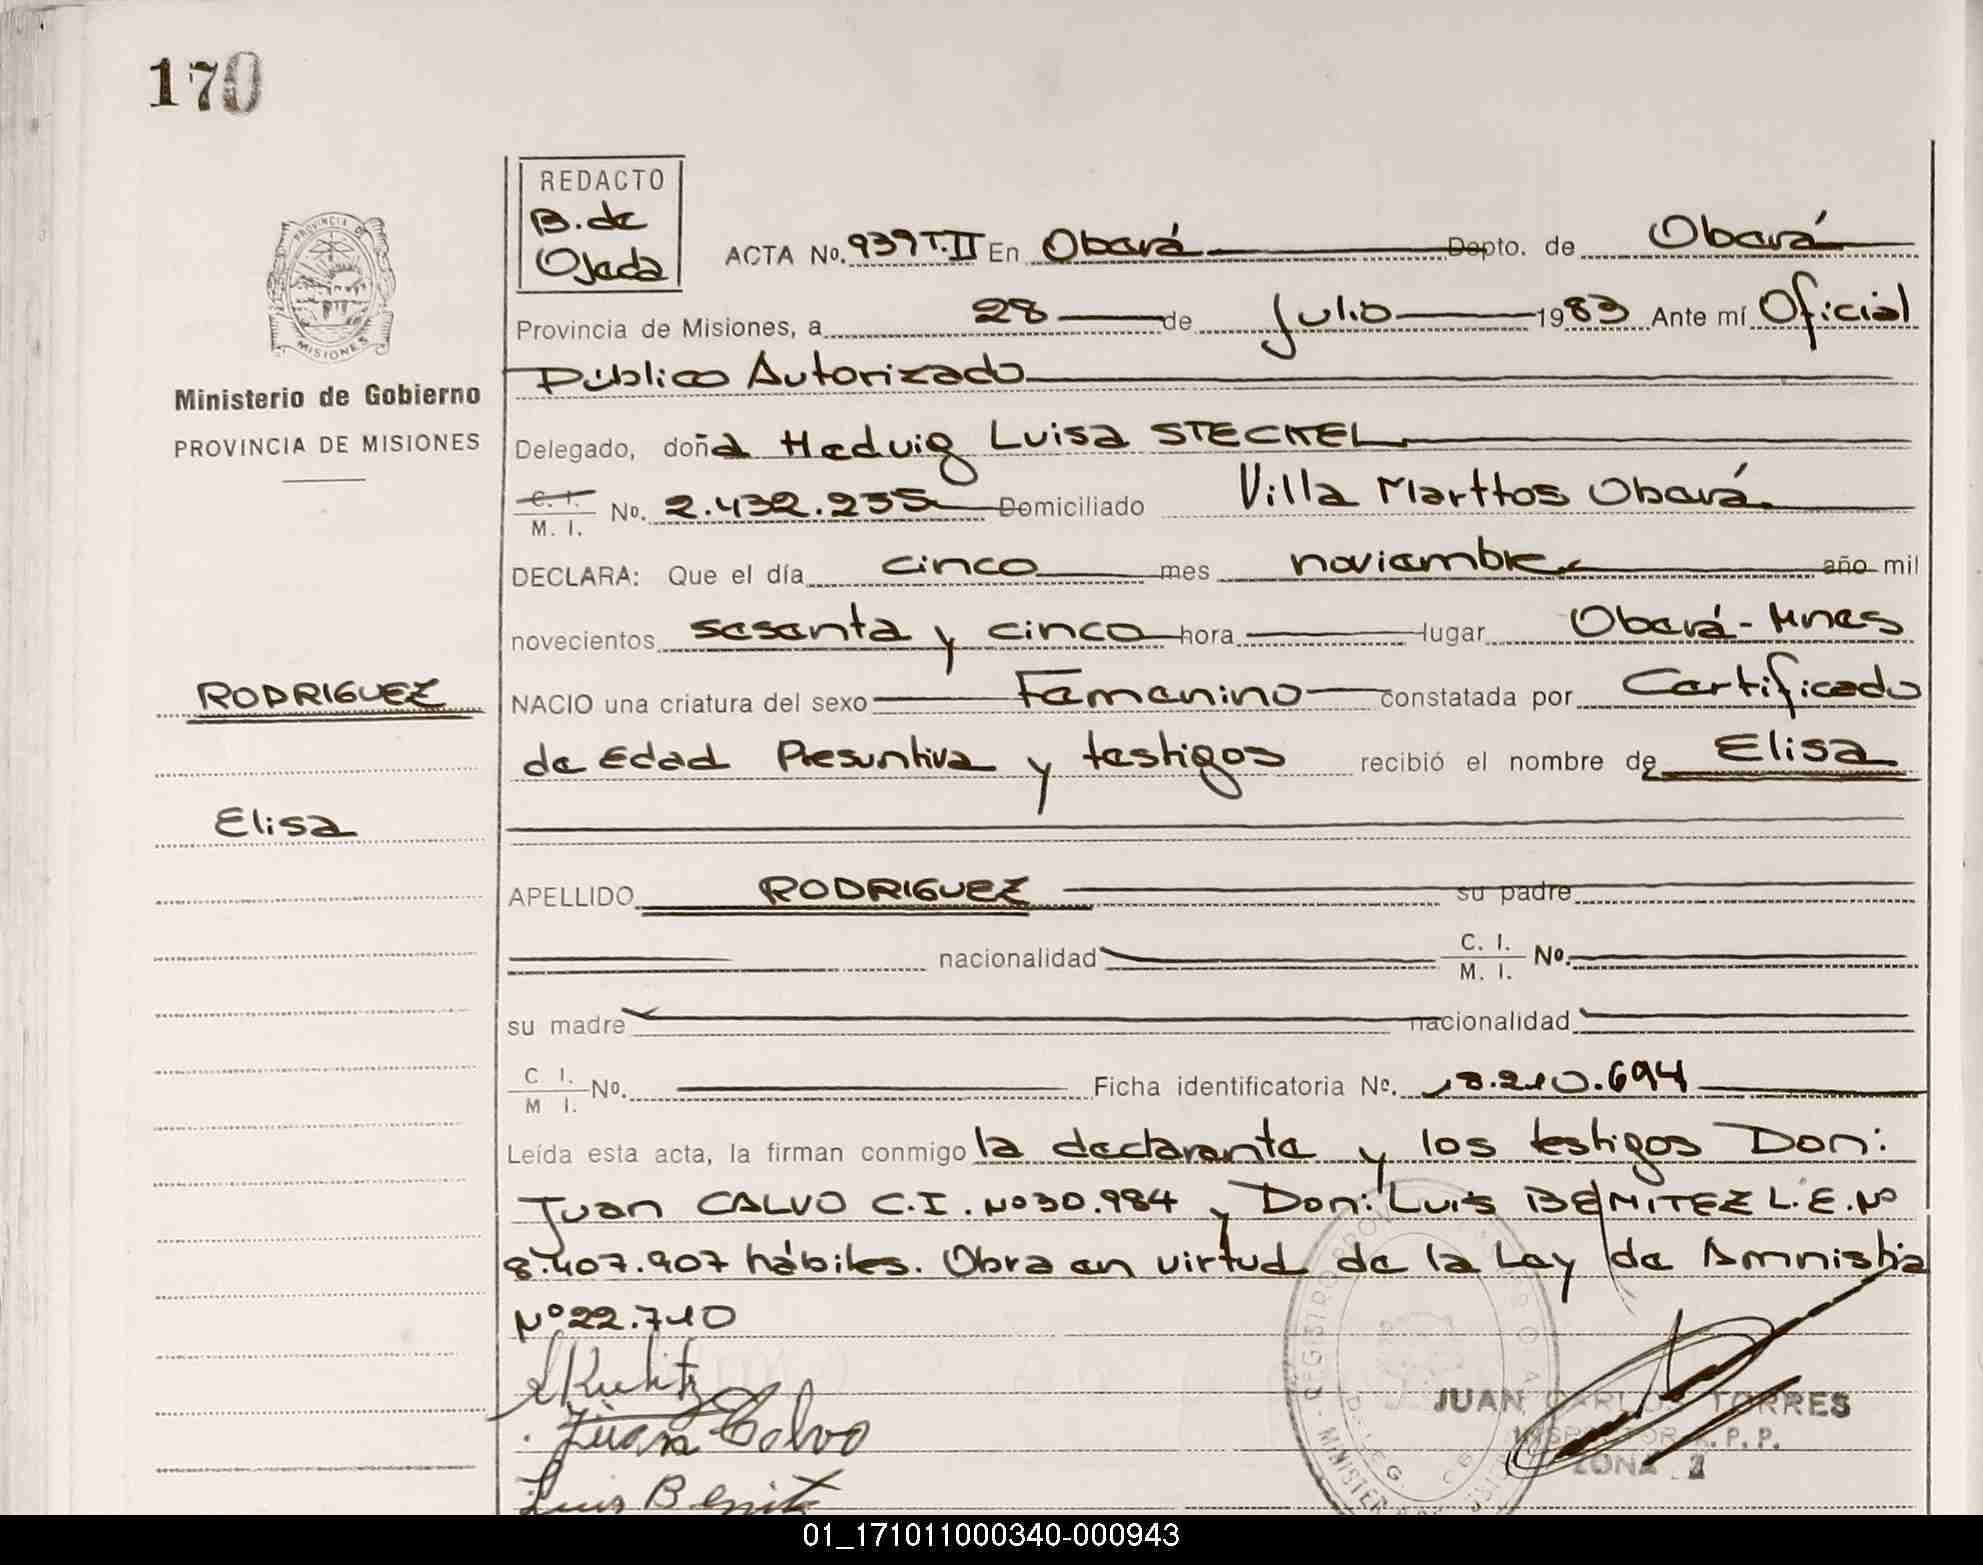 170
PROVINCIA DE
MISIONES
Ministerio de Gobierno
PROVINCIA DE MISIONES
REDACTO
B. de
Ojeda
ACTA No. 939 T.II En Oberá Depto. de Oberá
Provincia de Misiones, a 28 de Julio 1983 Ante mí Oficial
Público Autorizado
Delegado, doña Hedwig Luisa STECKEL
C. I. / M. I. No. 2.432.235 Domiciliado Villa Marttos Oberá
DECLARA: Que el día cinco mes noviembre año mil
novecientos sesenta y cinco hora lugar Oberá-Mnes
RODRIGUEZ
NACIO una criatura del sexo Femenino constatada por Certificado
de Edad Presuntiva y testigos recibió el nombre de Elisa
Elisa
APELLIDO RODRIGUEZ su padre
nacionalidad C. I. / M. I. No.
su madre nacionalidad
C I. / M I. No. Ficha identificatoria No. 18.210.694
Leída esta acta, la firman conmigo la declarante y los testigos Don:
Juan CALVO C.I. Nº 30.984 y Don: Luis BENITEZ L.E. Nº
8.407.907 hábiles. Obra en virtud de la Ley de Amnistia
Nº 22.710
Juan Calvo
Luis Benitez
JUAN CARLOS TORRES
INSPECTOR R. P. P.
ZONA 2
01_171011000340-000943